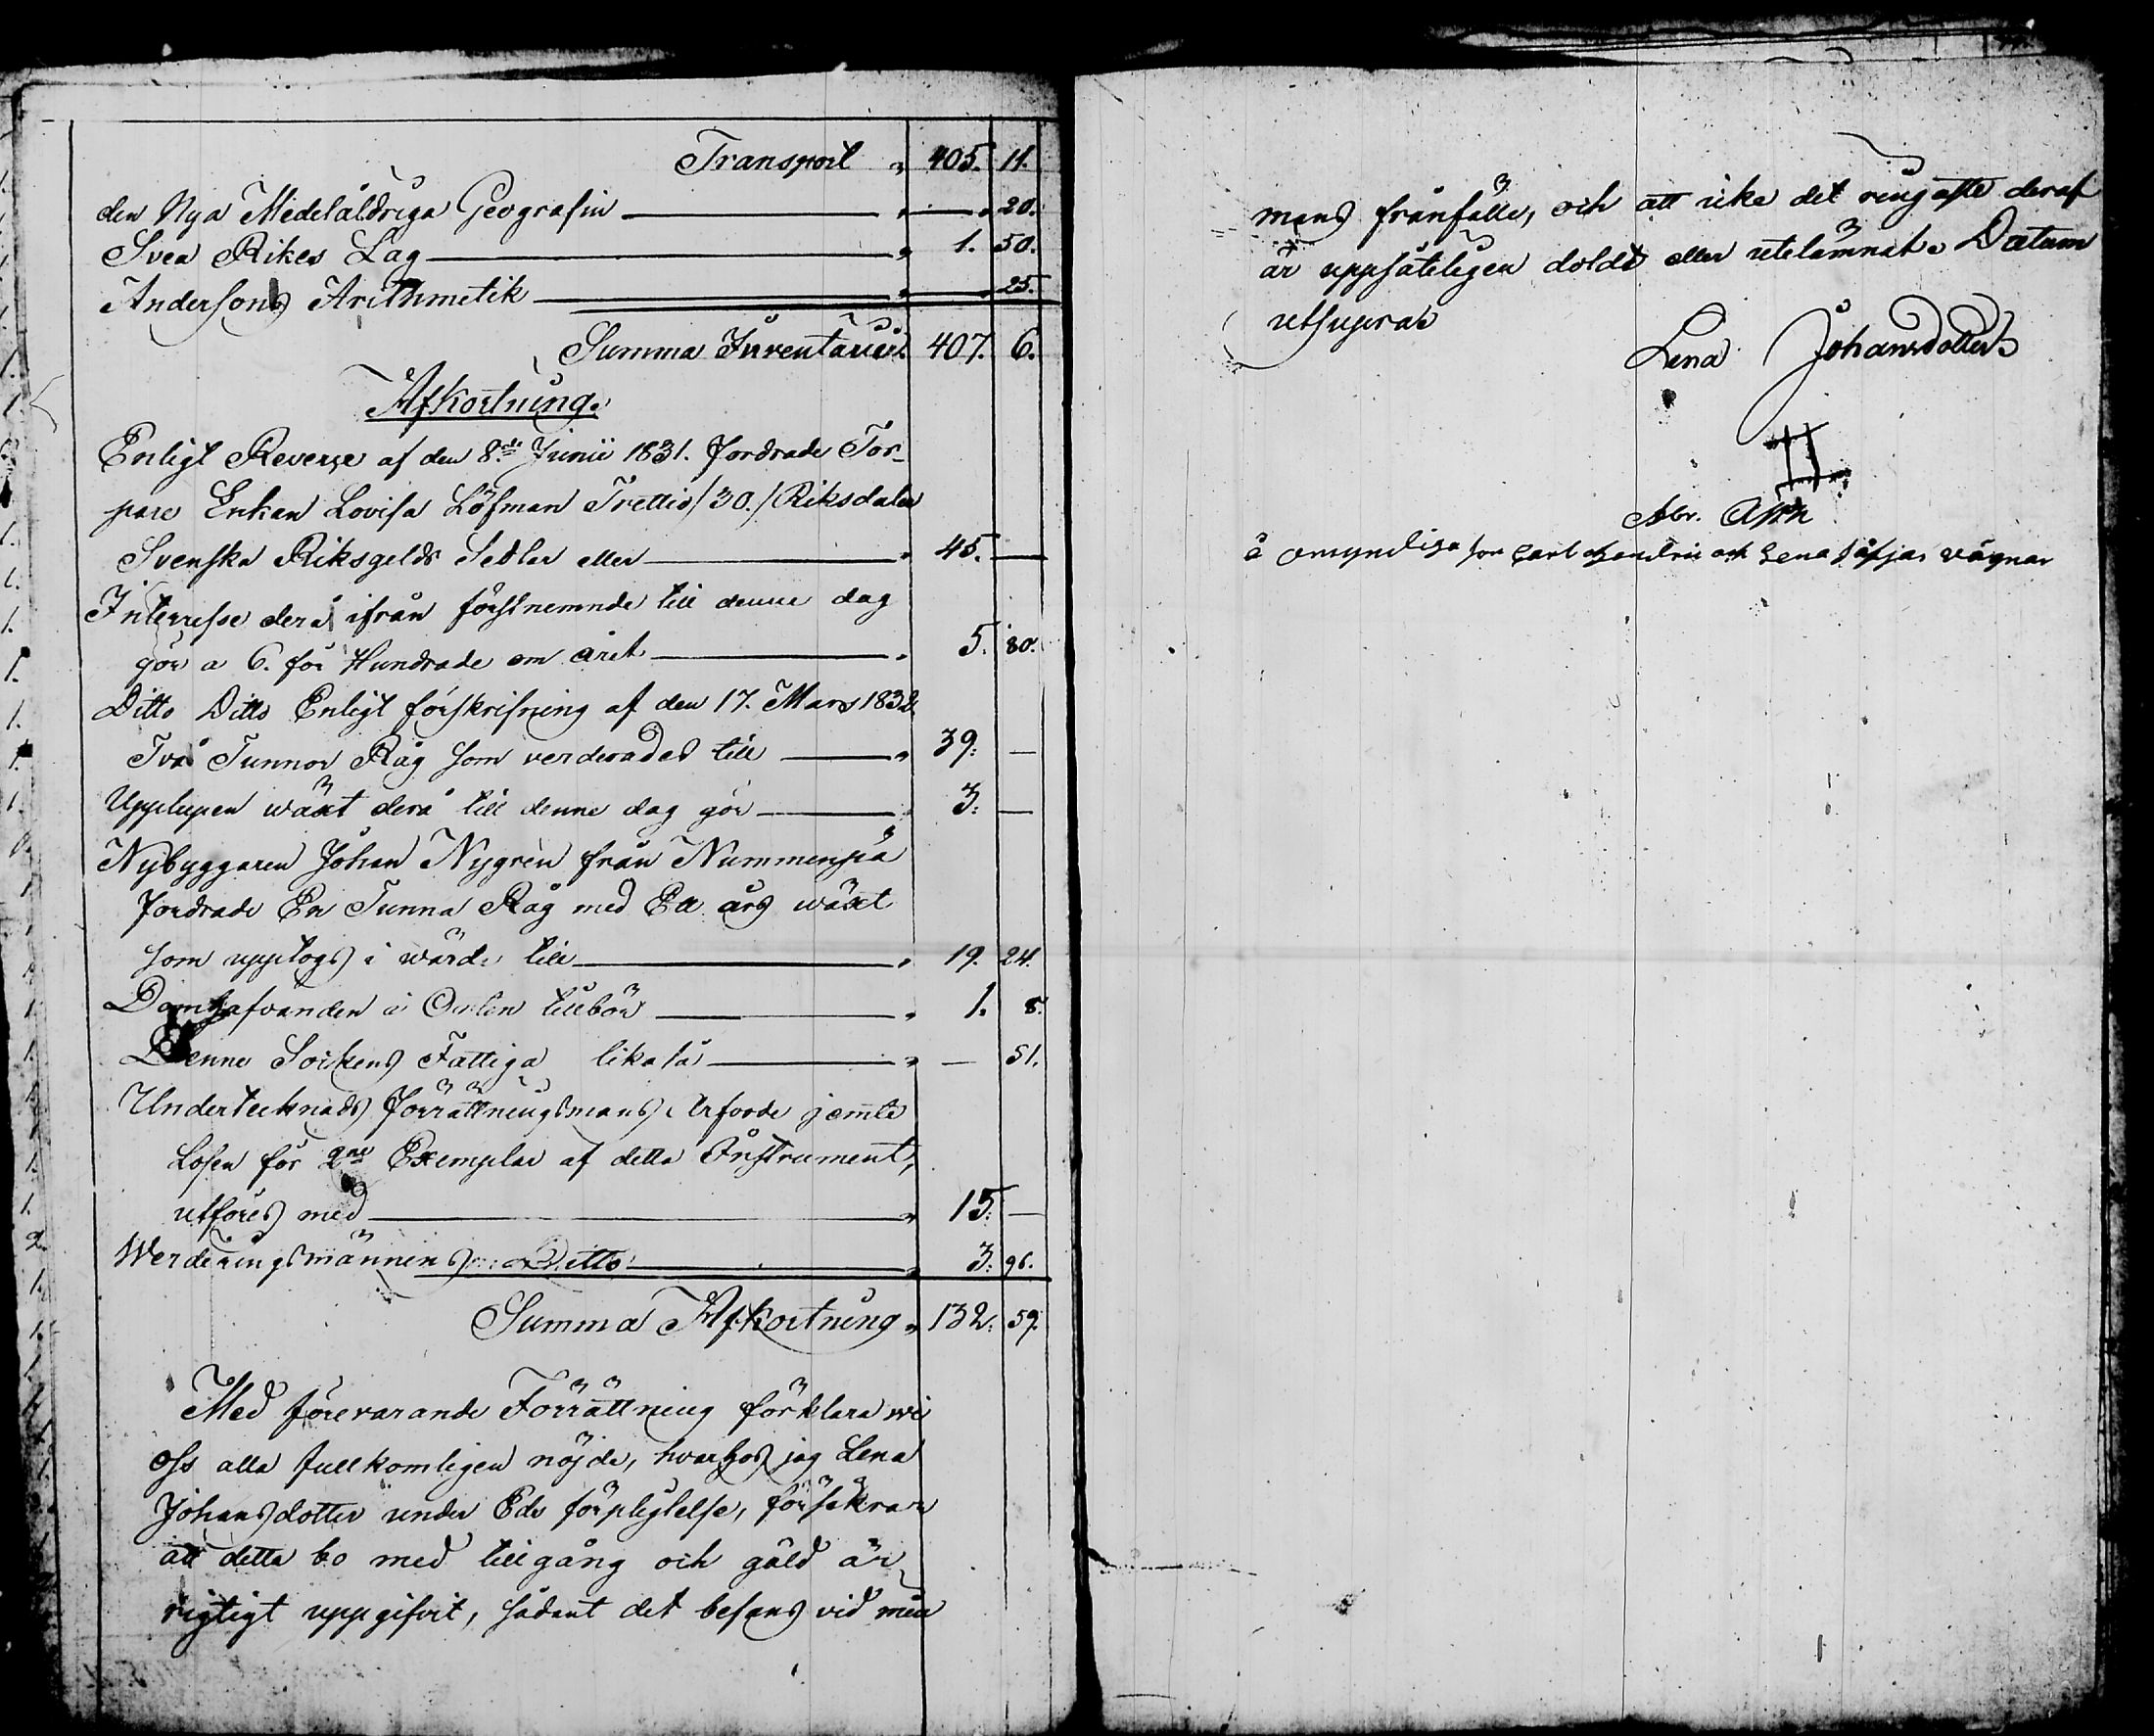 Transport " 405. 11.
den Nya Medelåldriga Geografin " — " 20.
Svea Rikes Lag " 1. 50.
Andersons Arithmetik " — " 25.
Summa Inventarier 407. 6.
Afkortning.
Enligt Reverse af den 8de Junii 1831. fordrade Tor-
pare Enkan Lovisa Löfman Trettio /30./ Riksdaler
Svenska Riksgelds Sedlar eller " 45. —
Interesse derå ifrån förstnemnde till denne dag
gör a 6. för Hundrade om året " 5. 80.
Ditto Ditto Enligt förskrifning af den 17. Mars 1832
Två Tunnor Råg som verderades till " 39: —
Upplupen wäxt derå till denne dag gör " 3: —
Nybyggaren Johan Nygren från Nummenpää
fordrade En Tunna Råg med Ett års wäxt
som upptogs i wärde till " 19. 24.
Domhafvanden i Orten tillbör " 1. 8.
Denne Sockens Fattiga likaså " — 51.
Undertecknads förrättningsmans Arfvode jemte
Losen för 2ne Exemplar af detta Instrument,
utföres med " 15: —
Werderingsmännens Ditto " 3: 96.
Summa Afkortning " 132. 59.
Med förevarande Förrättning förklara wi
oss alla fullkomligen nöjde, hvarhos jag Lena
Johansdotter under Eds förpligtelse, försäkrar
att detta bo med tillgång och gäld är
rigtigt uppgifvit, sådant det befans vid min
mans frånfälle, och att icke det ringaste deraf
är uppsåteligen doldt eller utelämnat. Datum
utsupra
Lena Johansdotter
Abr.
å omyndiga son Carl Hendric och Lena Sofias vägnar